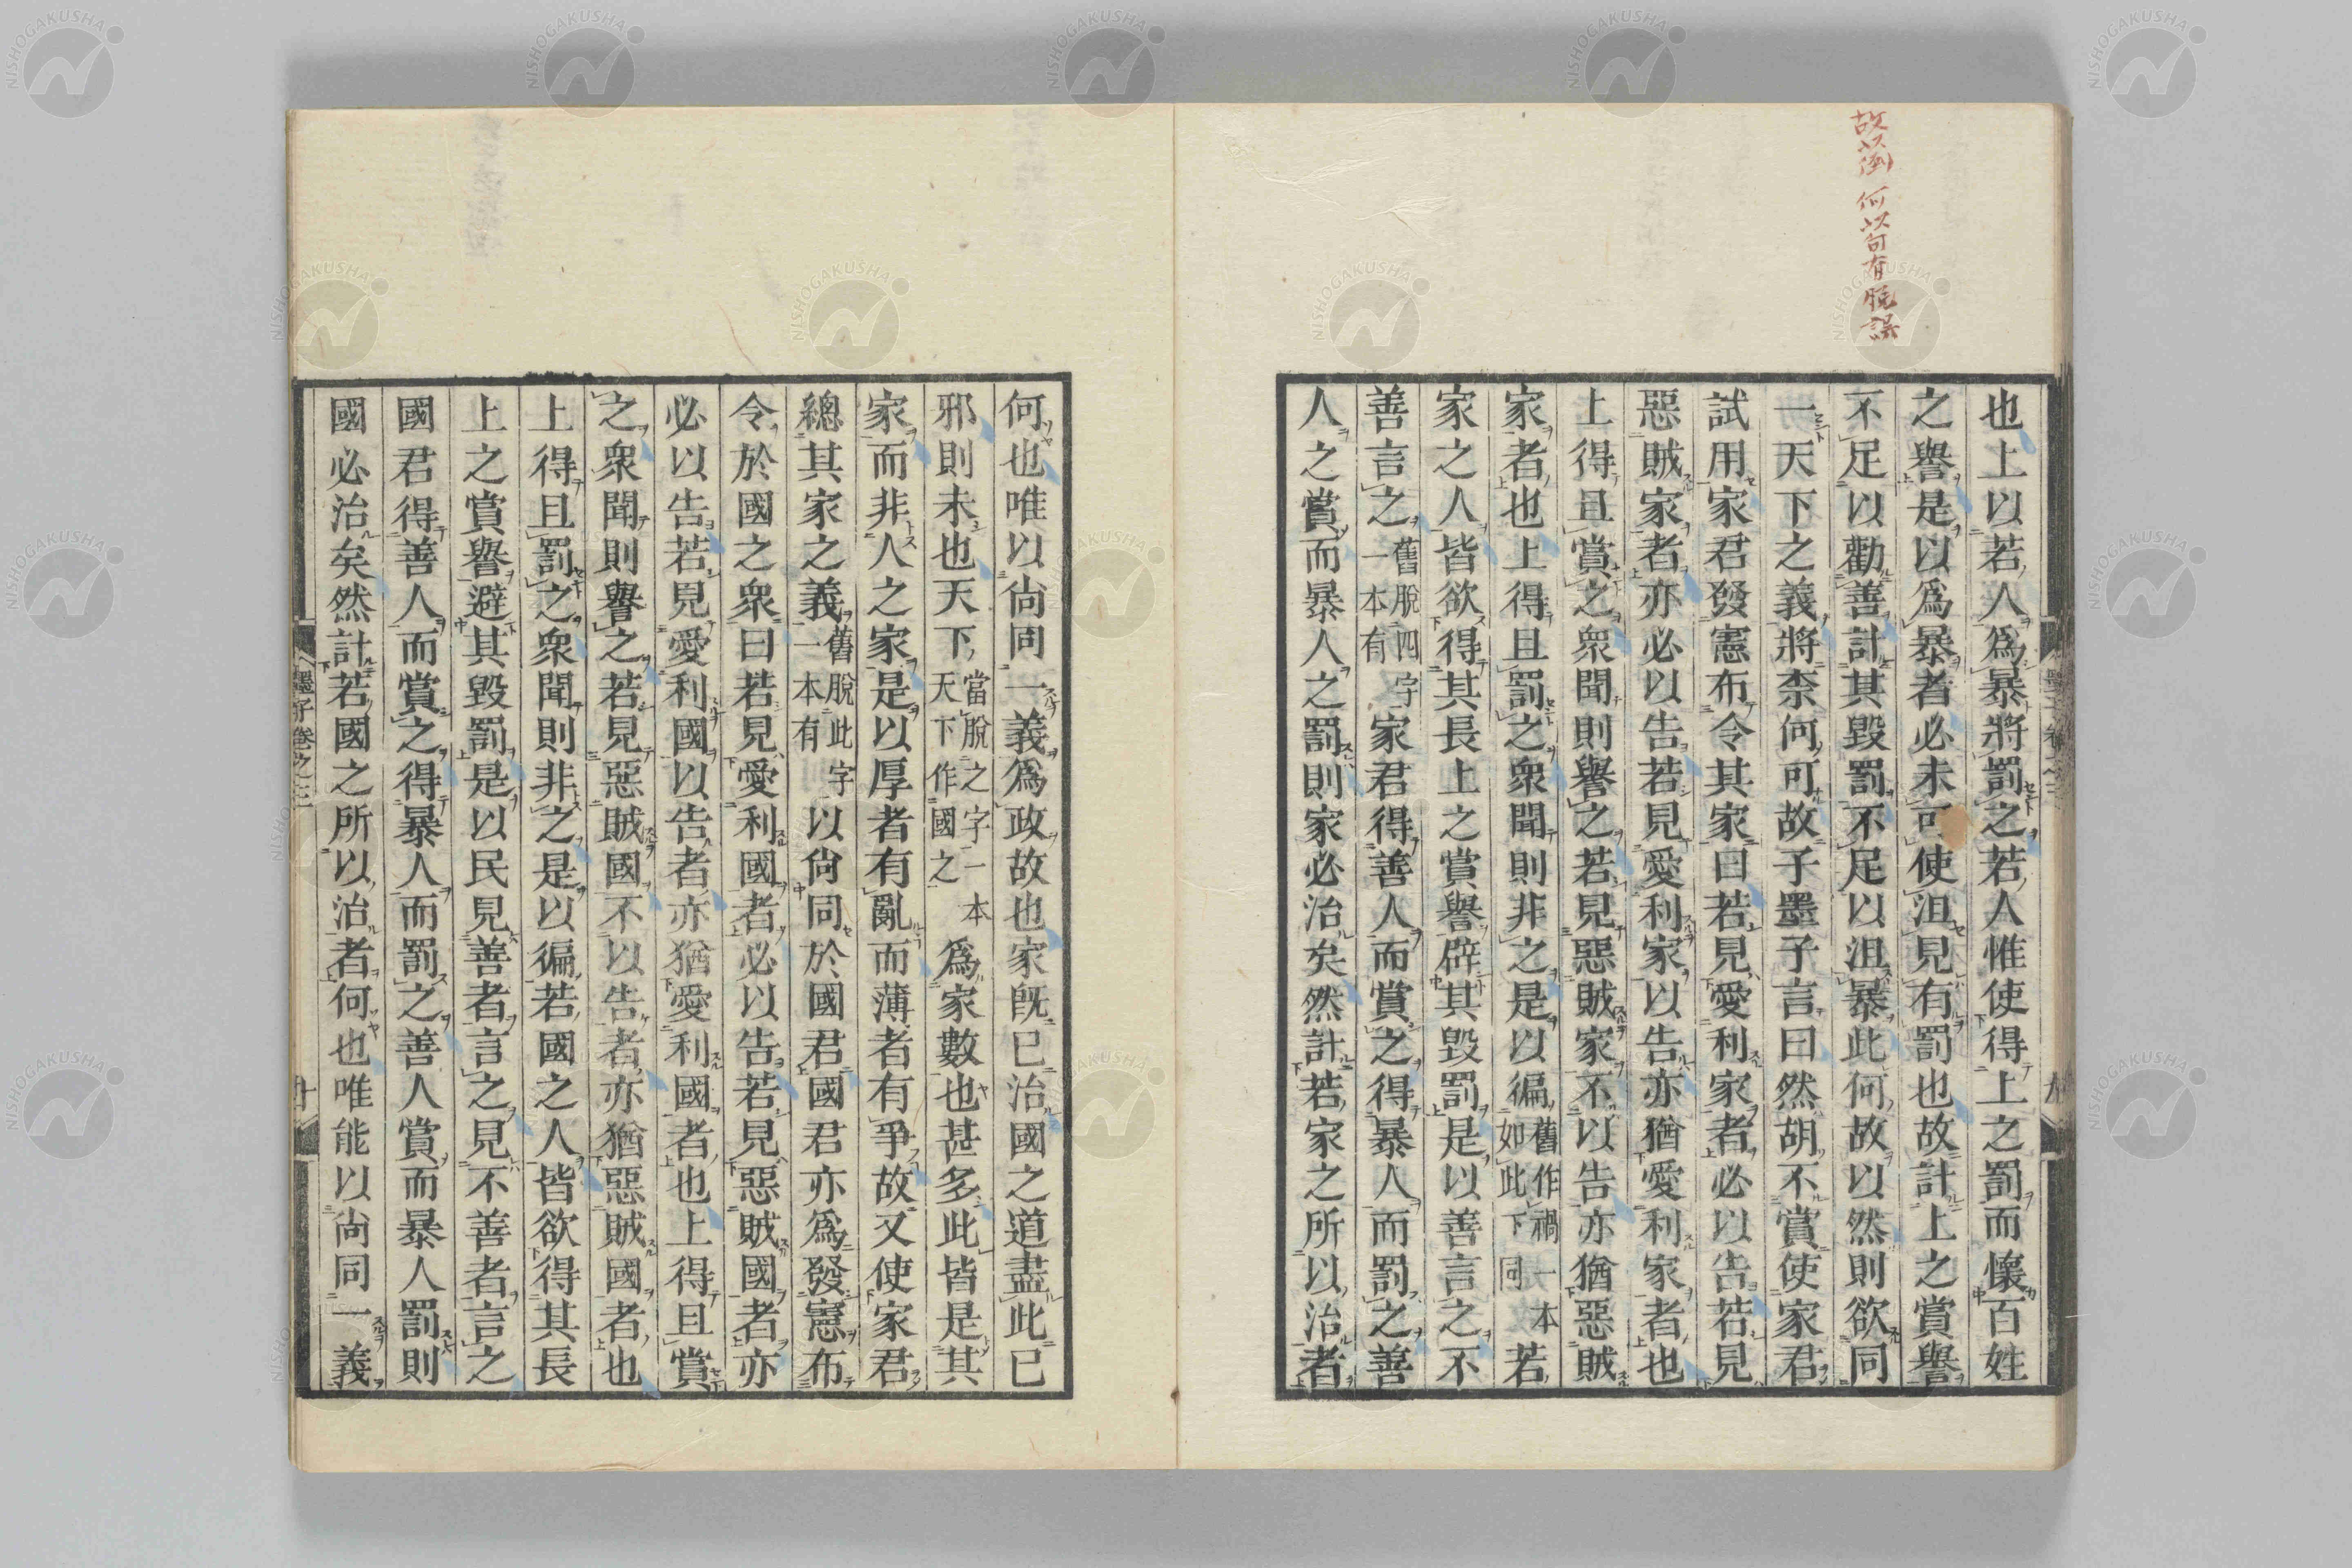 故以倒何以句有脱誤
也上以若人爲暴將罰之若人惟使得上之罰而懷百姓
之譽是以爲暴者必未可使沮見有罰也故計上之賞譽
不足以勸善計其毀罰不足以沮暴此何故以然則欲同
一天下之義將柰何可故子墨子言曰然胡不賞使家君
試用家君發憲布令其家曰若見愛利家者必以告若見
惡賊家者亦必以告若見愛利家以告亦猶愛利家者也
上得且賞之衆聞則譽之若見惡賊家不以告亦猶惡賊
家者也上得且罰之衆聞則非之是以徧舊作禍一本如此下同若
家之人皆欲得其長上之賞譽辟其毀罰是以善言之不
善言之舊脫四字一本有家君得善人而賞之得暴人而罰之善
人之賞而暴人之罰則家必治矣然計若家之所以治者
何也唯以尚同一義爲政故也家旣已治國之道盡此已
邪則未也天下當脫之字一本天下作國之爲家數也甚多此皆是其
家而非人之家是以厚者有亂而薄者有爭故又使家君
總其家之義舊脫此字一本有以尙同於國君國君亦爲發憲布
令於國之衆曰若見愛利國者必以告若見惡賊國者亦
必以告若見愛利國以告者亦猶愛利國者也上得且賞
之衆聞則譽之若見惡賊國不以告者亦猶惡賊國者也
上得且罰之衆聞則非之是以徧若國之人皆欲得其長
上之賞譽避其毀罰是以民見善者言之見不善者言之
國君得善人而賞之得暴人而罰之善人賞而暴人罰則
國必治矣然計若國之所以治者何也唯能以尚同一義
墨子卷之三
十
九
NISHOGAKUSHA